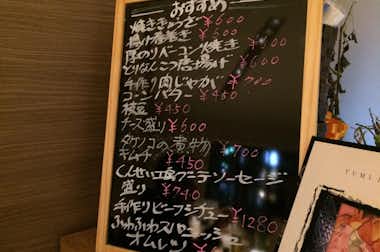 おすすめ
焼きぎょうざ ¥600
揚げ春巻き ¥500
厚切りベーコン焼き ¥
とりなんこつ唐揚げ ¥600
手作り肉じゃが ¥700
コーンバター ¥450
枝豆 ¥450
チーズ盛り ¥600
タケノコの煮物 ¥700
キムチ ¥450
くんせい工房ワニテソーセージ
盛り ¥740
手作りビーフシチュー ¥1280
ふわふわスパニッシュ
オムレツ
YUMI